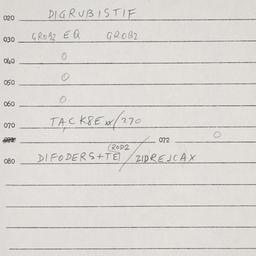 020 DIGRUBISTIF
030 GROB2 EQ GROB2
040 0
050 0
060 0
070 TACK8Exx/270
072 0
(ROD2
080 DIFODERS+TEI/ZIDREJCAX